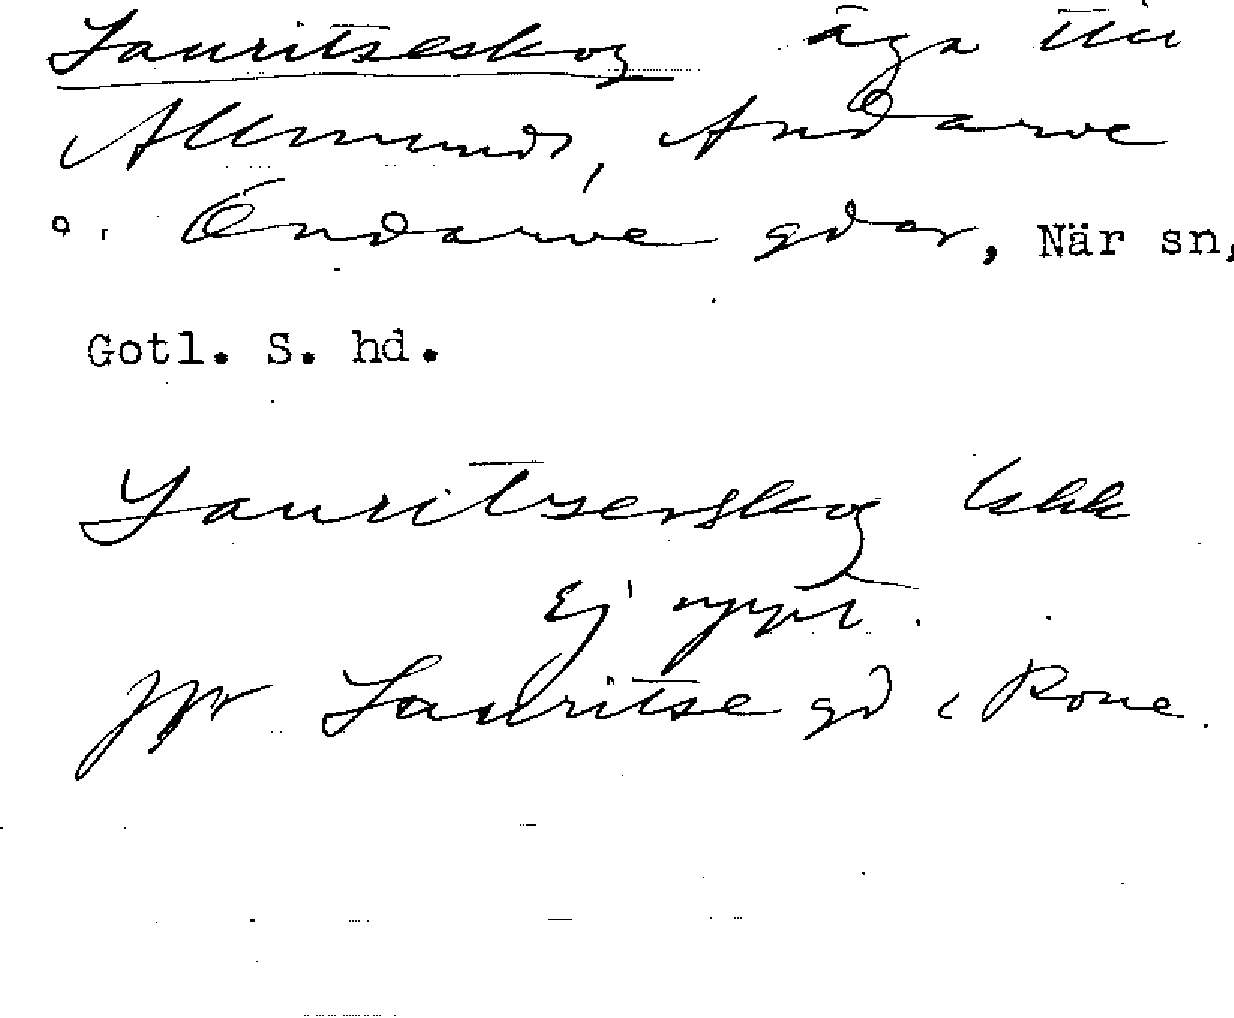 Lauritseskog äga till
Allmunds, Andarve
o. Öndarve gdar, När sn,
Gotl. S. hd.
Lauritserskog
Ej uppt.
Jfr Lauritse gd i Rone.